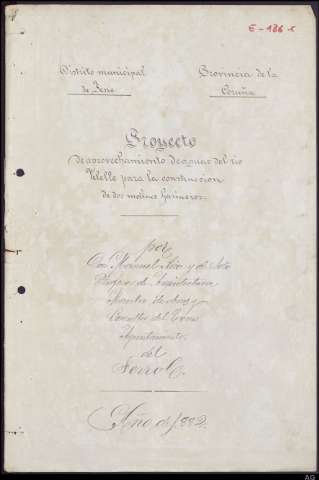 E-186-1
Distrito municipal
de Fene
Provincia de la
Coruña
Proyecto
de aprovechamiento de aguas del rio
Belelle para la construccion
de dos molinos harineros.
por
Don Manuel
de Arquitectura
Maestro de Obras y
del
Ayuntamiento
del
Ferrol.
Año de 1882.
AG